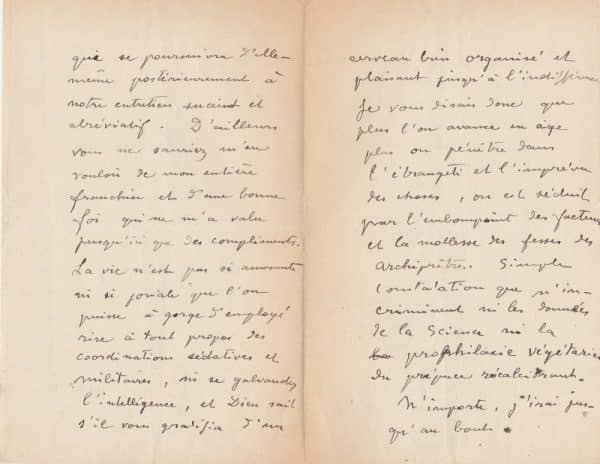 qui se poursuivra d'elle-
même postérieurement à
notre entretien succint et
abréviatif. D'ailleurs
vous ne sauriez m'en
vouloir de mon entière
franchise et d'une bonne
foi qui ne m'a valu
jusqu'ici que des compliments.
La vie n'est pas si amusante
ni si joviale que l'on
puisse à gorge d'employé
rire à tout propos des
coordinations sédatives et
militaires, ni se galvauder
l'intelligence, et Dieu sait
s'il vous gratifia d'un
cerveau bien organisé et
plaisant jusqu'à l'indifférence
Je vous disais donc que
plus l'on avance en âge
plus on pénètre dans
l'étrangeté et l'imprévu
des choses, on est séduit
par l'embonpoint des facteurs
et la mollesse des fesses des
archiprêtres. Simple
constatation que n'in-
criminent ni les données
de la Science ni la
prophilaxie végétarienne
du prépuce récalcitrant.
N'importe, j'irai jus-
qu'au bout.